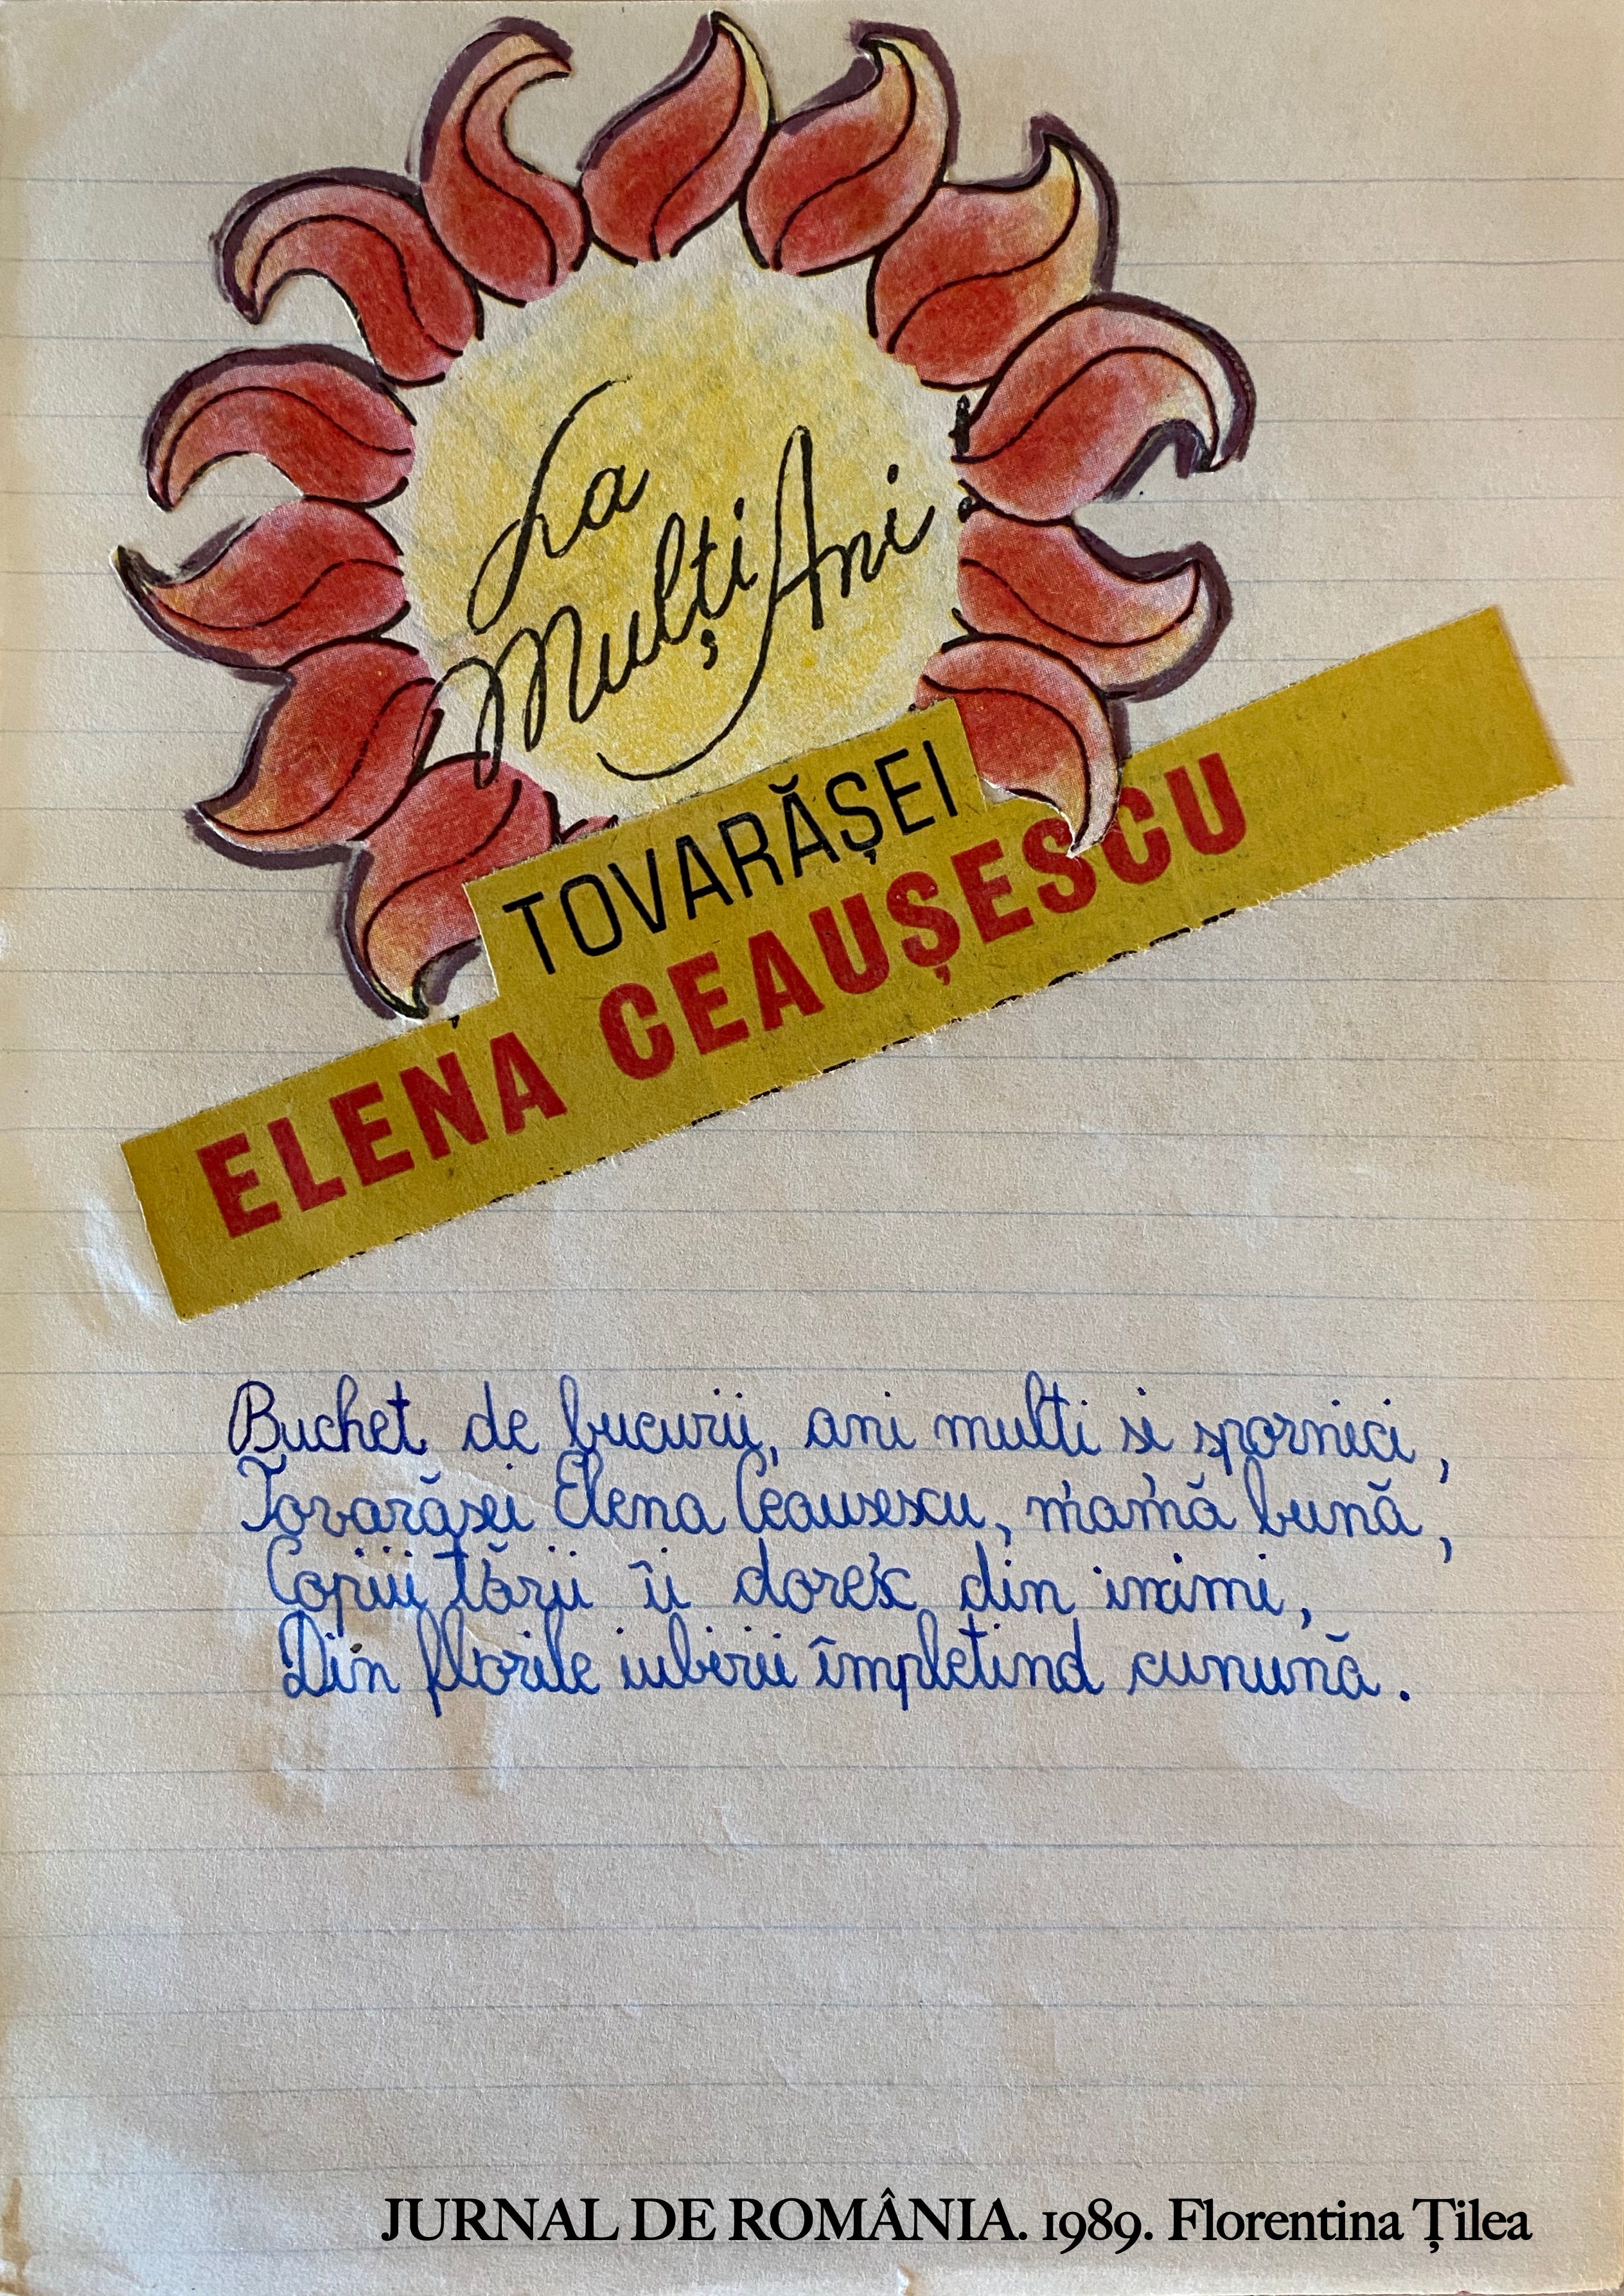 La
Mulți Ani
TOVARĂȘEI
ELENA CEAUȘESCU
Buchet de bucurii, ani multi si spornici,
Tovarăsei Elena Ceausescu, mamă bună,
Copiii tării îi doresc din inimi,
Din florile iubirii împletind cunună.
JURNAL DE ROMÂNIA. 1989. Florentina Țilea